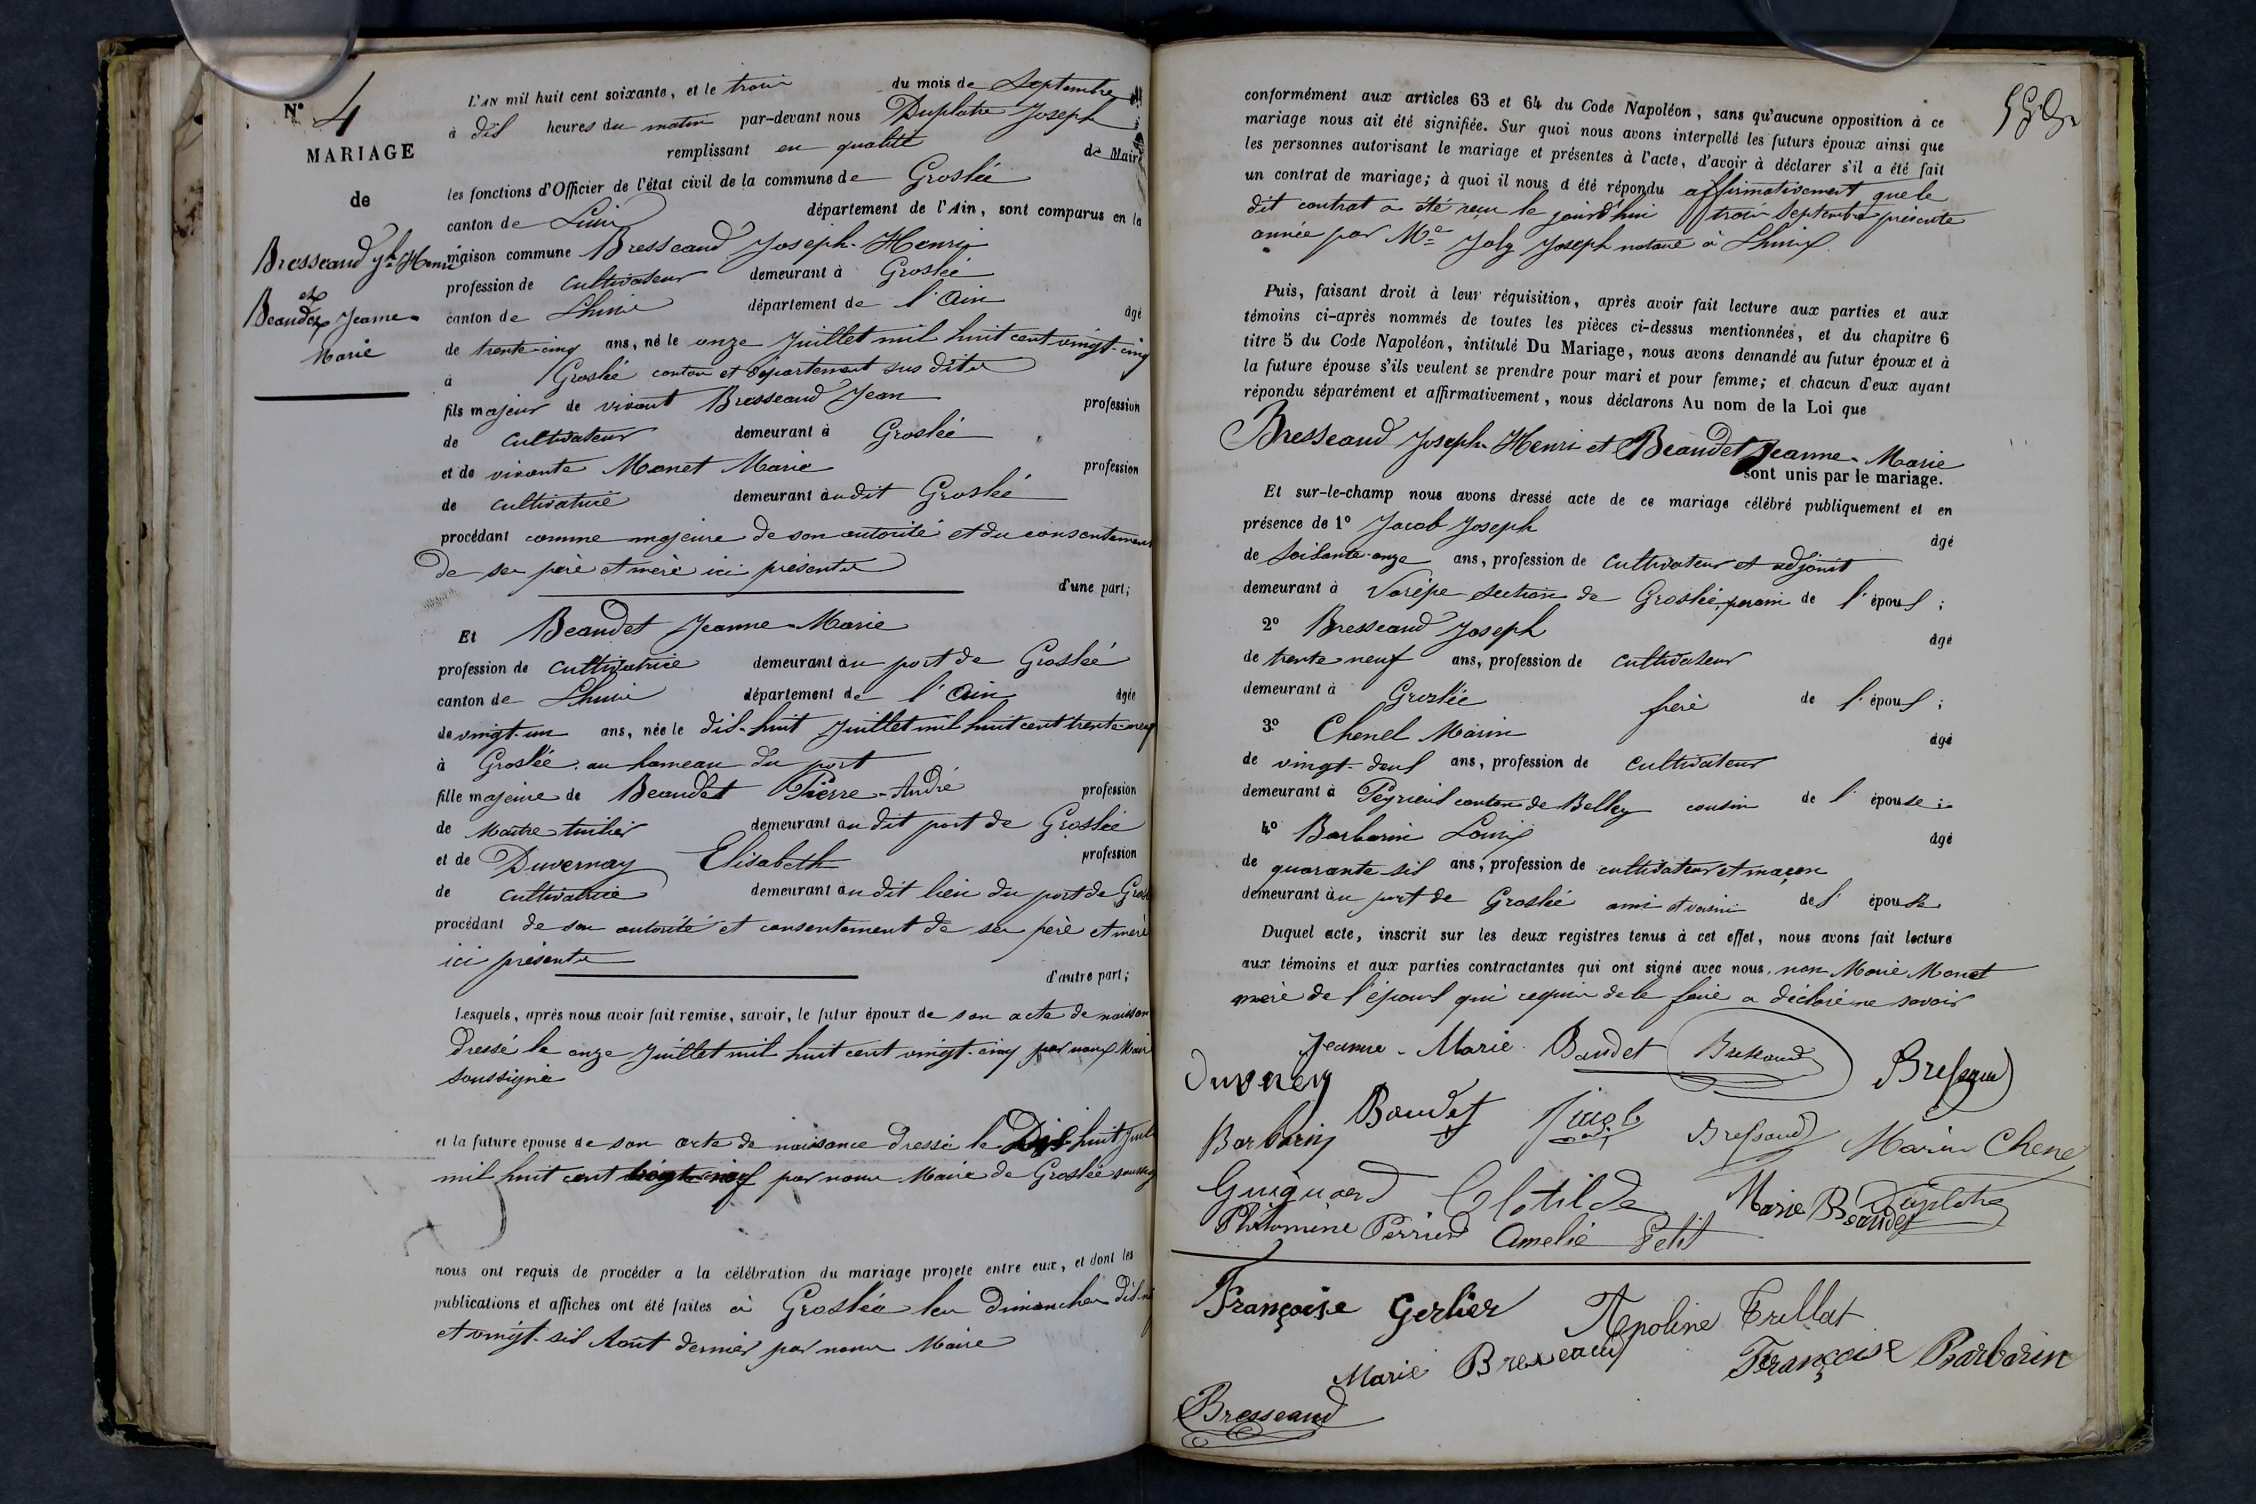 N° 4
MARIAGE
de
Bresseaud Jh Henri
et
Beaudet Jeanne-
Marie
L'AN mil huit cent soixante, et le trois du mois de Septembre
à dix heures du matin par-devant nous Duplatre Joseph
remplissant en qualité de Maire
les fonctions d'Officier de l'état civil de la commune de Groslée
canton de Lhuis département de l'Ain, sont comparus en la
maison commune Bresseaud Joseph-Henri
profession de cultivateur demeurant à Groslée
canton de Lhuis département de l'Ain âgé
de trente-cinq ans, né le onze Juillet mil huit cent vingt-cinq
à Groslée canton et département sus dits
fils majeur de vivant Bresseaud Jean profession
de cultivateur demeurant à Groslée
et de vivante Monet Marie profession
de cultivatrice demeurant audit Groslée
procédant comme majeure de son autorité et du consentement
de ses père et mère ici présents
d'une part;
Et Beaudet Jeanne-Marie
profession de cultivatrice demeurant au port de Groslée
canton de Lhuis département de l'Ain âgée
de vingt-un ans, née le dix-huit Juillet mil huit cent trente-neuf
à Groslée au hameau du port
fille majeure de Beaudet Pierre-André profession
de Maître tuilier demeurant au dit port de Groslée
et de Duvernay Elisabeth profession
de cultivatrice demeurant au dit lieu du port de Groslée
procédant de son autorité et consentement de ses père et mère
ici présents
d'autre part;
Lesquels, après nous avoir fait remise, savoir, le futur époux de son acte de naissan
dressé le onze Juillet mil huit cent vingt-cinq par nous Maire
soussigné
et la future épouse de son acte de naissance dressé le Dix huit Juil
mil huit cent par nous Maire de Groslée soussig
nous ont requis de procéder a la célébration du mariage projeté entre eux, et dont les
publications et affiches ont été faites à Groslée les dimanches dix-n
et vingt-six Août dernier par nous Maire
conformément aux articles 63 et 64 du Code Napoléon, sans qu'aucune opposition à ce
mariage nous ait été signifiée. Sur quoi nous avons interpellé les futurs époux ainsi que
les personnes autorisant le mariage et présentes à l'acte, d'avoir à déclarer s'il a été fait
un contrat de mariage; à quoi il nous a été répondu affirmativement que le
dit contrat a été reçu le jourd'hui trois Septembre présente
année par Me Joly Joseph notaire à Lhuis
Puis, faisant droit à leur réquisition, après avoir fait lecture aux parties et aux
témoins ci-après nommés de toutes les pièces ci-dessus mentionnées, et du chapitre 6
titre 5 du Code Napoléon, intitulé Du Mariage, nous avons demandé au futur époux et à
la future épouse s'ils veulent se prendre pour mari et pour femme; et chacun d'eux ayant
répondu séparément et affirmativement, nous déclarons Au nom de la Loi que
Bresseaud Joseph-Henri et Beaudet Jeanne-Marie
sont unis par le mariage.
Et sur-le-champ nous avons dressé acte de ce mariage célébré publiquement et en
présence de 1° Jacob Joseph âgé
de soixante-onze ans, profession de cultivateur et adjoint
demeurant à Varèpe section de Groslée, parain de l'époux;
2° Bresseaud Joseph âgé
de trente neuf ans, profession de cultivateur
demeurant à Groslée frère de l'époux;
3° Chenel Marin âgé
de vingt-deux ans, profession de cultivateur
demeurant à Peyrieux canton de Belley cousin de l'épouse;
4° Barbarin Louis âgé
de quarante six ans, profession de cultivateur et maçon
demeurant au port de Groslée ami et voisin de l'épouse
Duquel acte, inscrit sur les deux registres tenus à cet effet, nous avons fait lecture
aux témoins et aux parties contractantes qui ont signé avec nous, non Marie Monet
mère de l'époux qui requise de le faire a déclaré ne savoir
Jeanne-Marie Baudet Bresseaud Bressaud
Duverney
Barbarin Baudet Jacob Bressaud Marin Chene
Guiguard Clotilde Marie Beaudet Duplatre
Philomène Perrier Amelie Petit
Françoise Gerlier Apoline Trillat
Marie Bresseaud Françoise Barbarin
Bresseaud